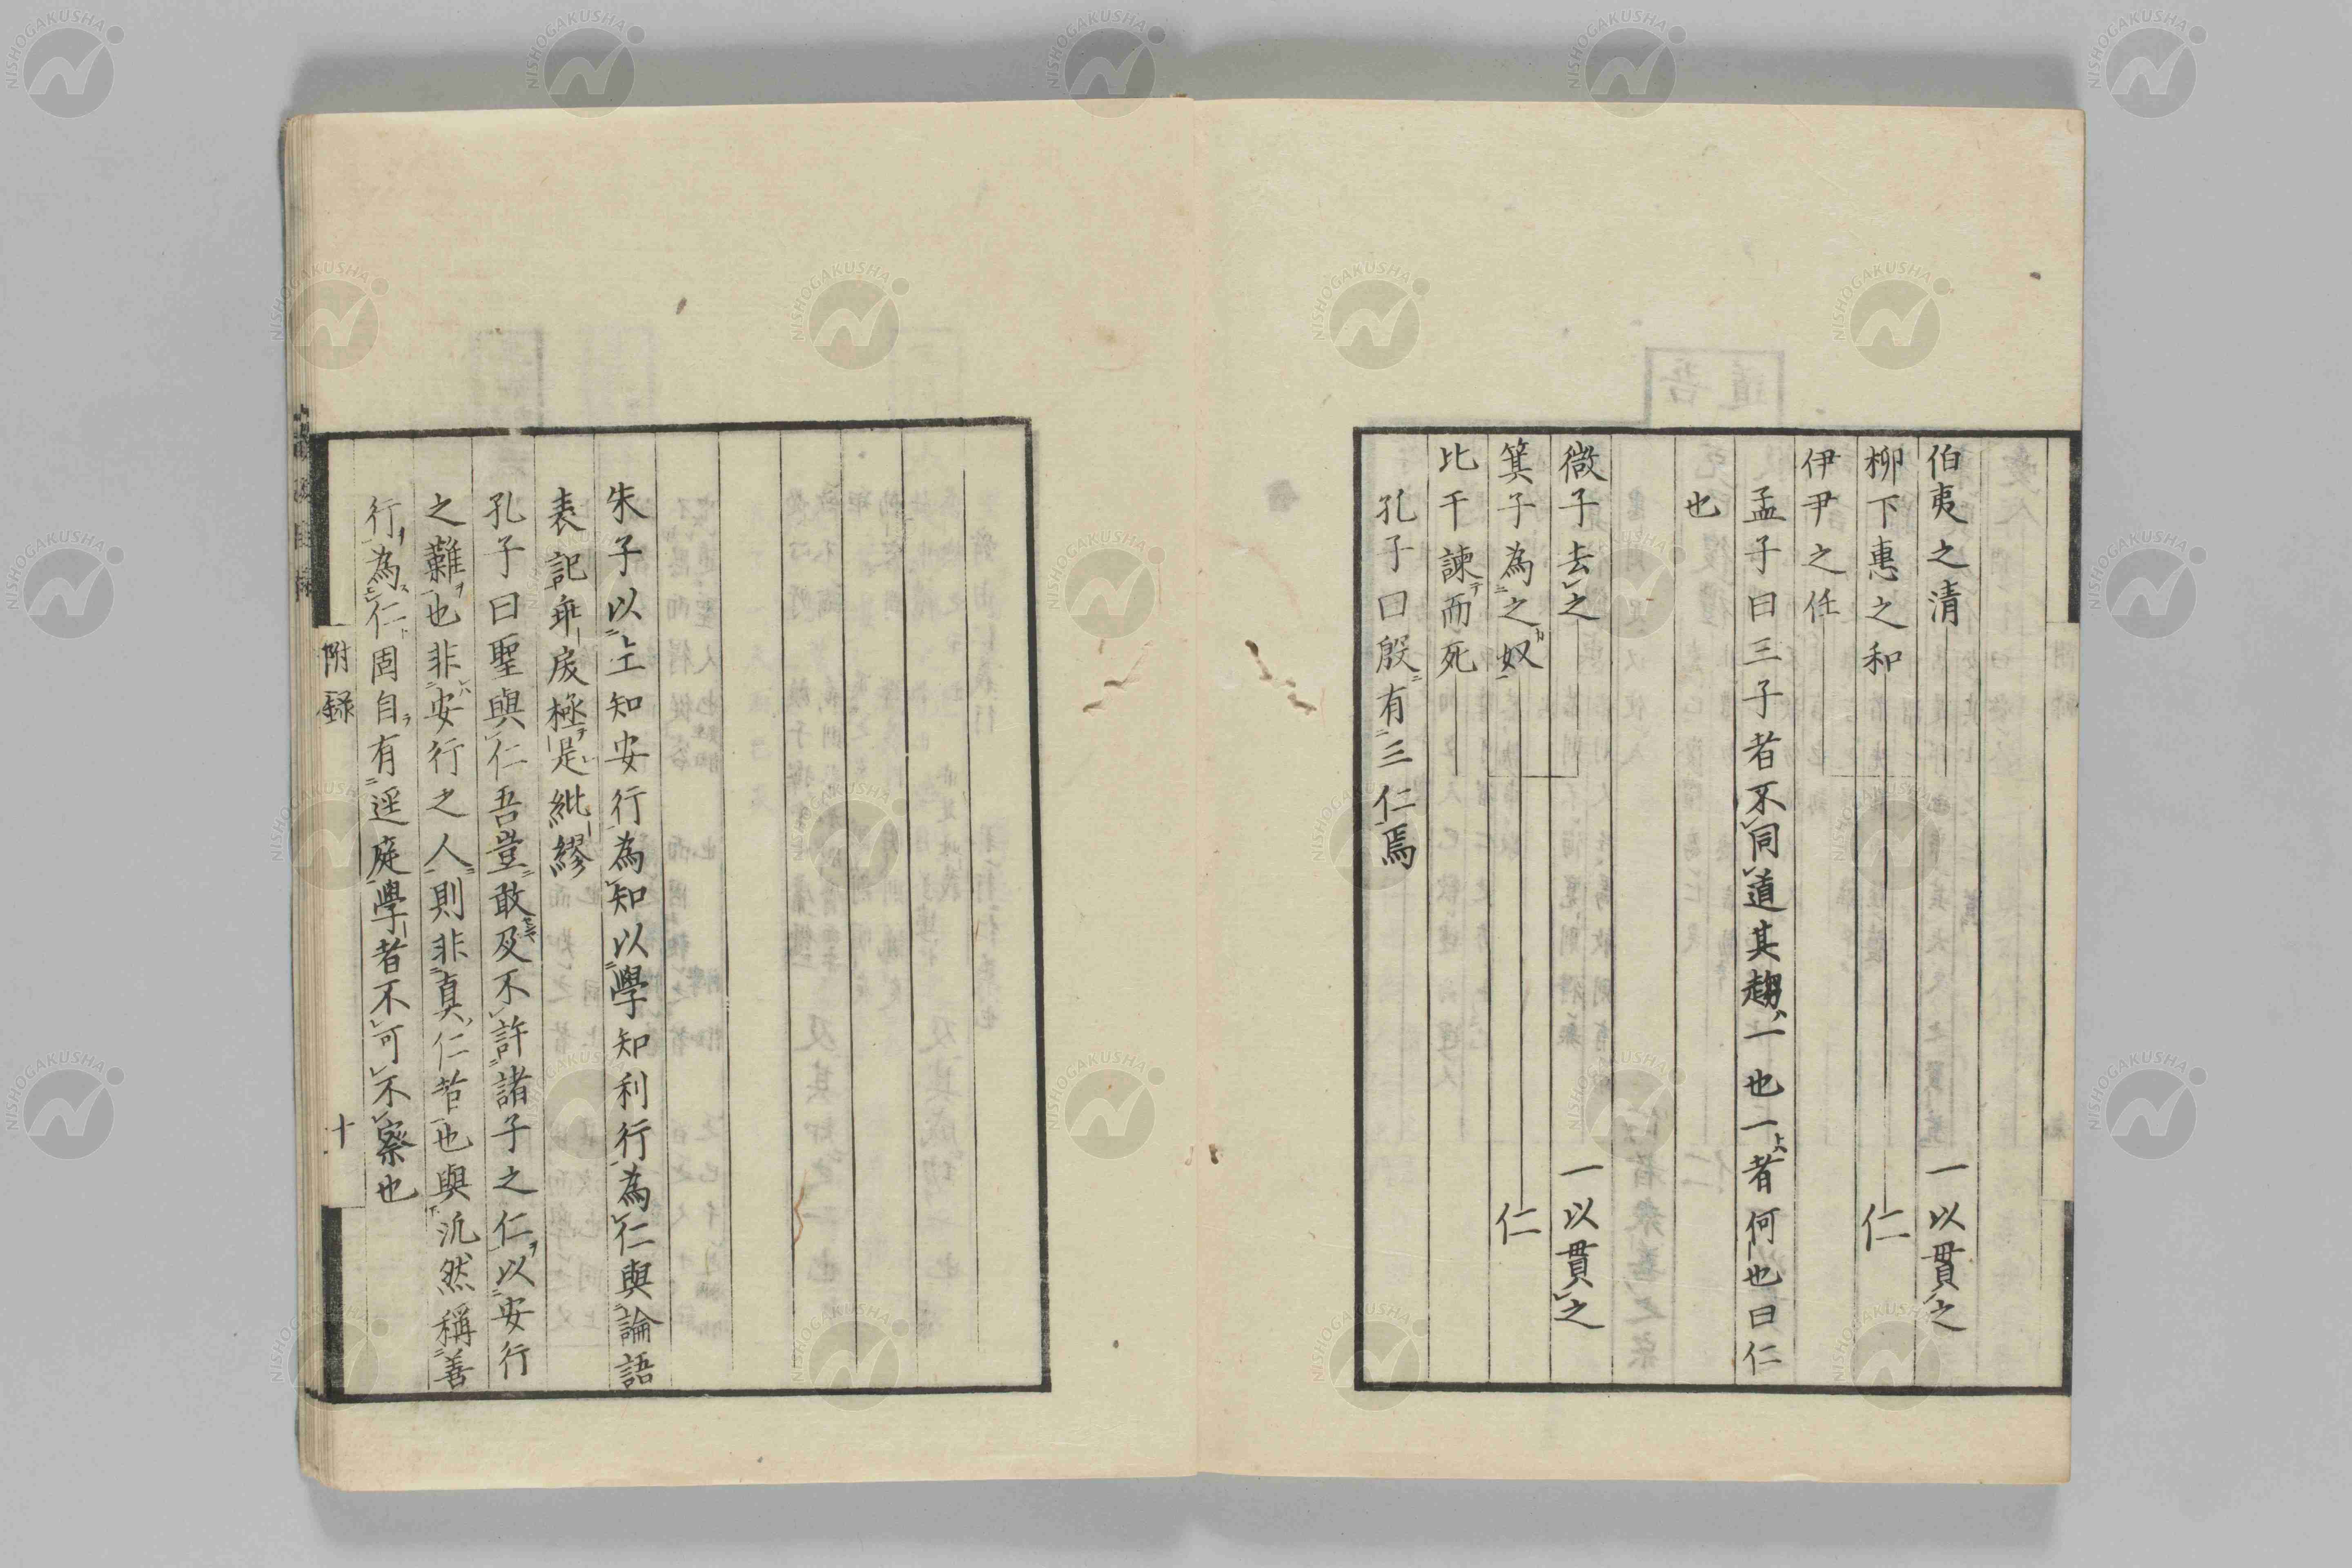 伯夷之清 一以貫之
柳下惠之和 仁
伊尹之任
孟子曰三子者不同道其趨一也一者何也曰仁
也
微子去之 一以貫之
箕子為之奴 仁
比干諫而死
孔子曰殷有三仁焉
朱子以上知安行為知以學知利行為仁與論語
表記乖戾極是紕繆
孔子曰聖與仁吾豈敢及不許諸子之仁以安行
之難也非安行之人則非真仁者也與汎然稱善
行為仁固自有逕庭學者不可不察也
附録
十
NISHOGAKUSHA